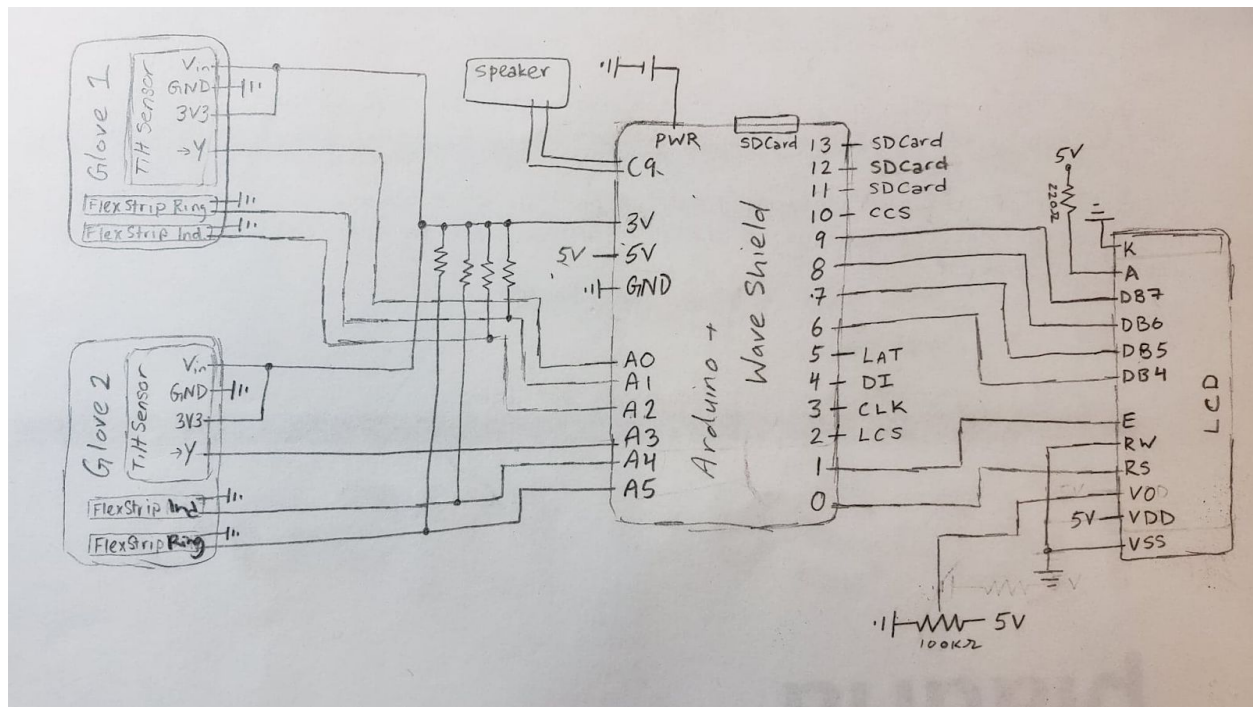 Glove 1
T:H Sensor
Vin
GND
3V3
→Y
FlexStrip Ring
FlexStrip Ind.
Glove 2
T:H Sensor
Vin
GND
3V3
→Y
FlexStrip Ind
FlexStrip Ring
Speaker
PWR
SDCard
C9
3V
5V 5V
GND
A0
A1
A2
A3
A4
A5
Arduino +
Wave Shield
13 SDCard
12 SDCard
11 SDCard
10 CCS
9
8
7
6
5 LAT
4 DI
3 CLK
2 LCS
1
0
5V
220Ω
K
A
DB7
DB6
DB5
DB4
E
RW
RS
VO
5V VDD
VSS
LCD
5V
100KΩ